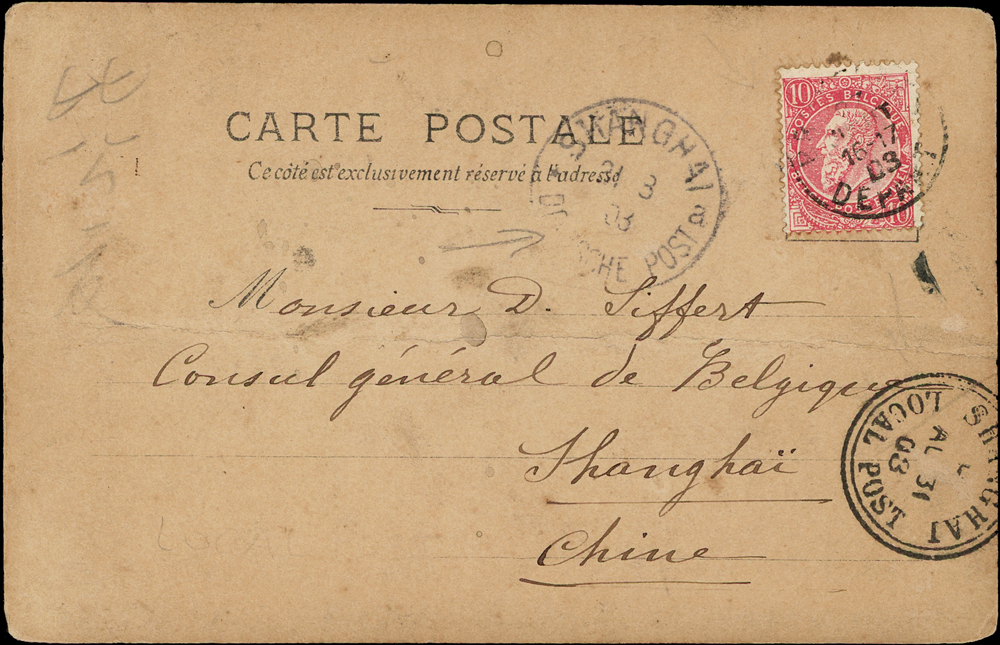 CARTE POSTALE
Ce côté est exclusivement réservé à l'adresse
10 10
POSTES BELGIQUE
16-17
03
DEPART
SHANGHAI
31 3
03
DEUTSCHE POST a
Monsieur D. Siffert
Consul général de Belgique
Shanghaï
Chine
SHANGHAI
LOCAL POST
31
03